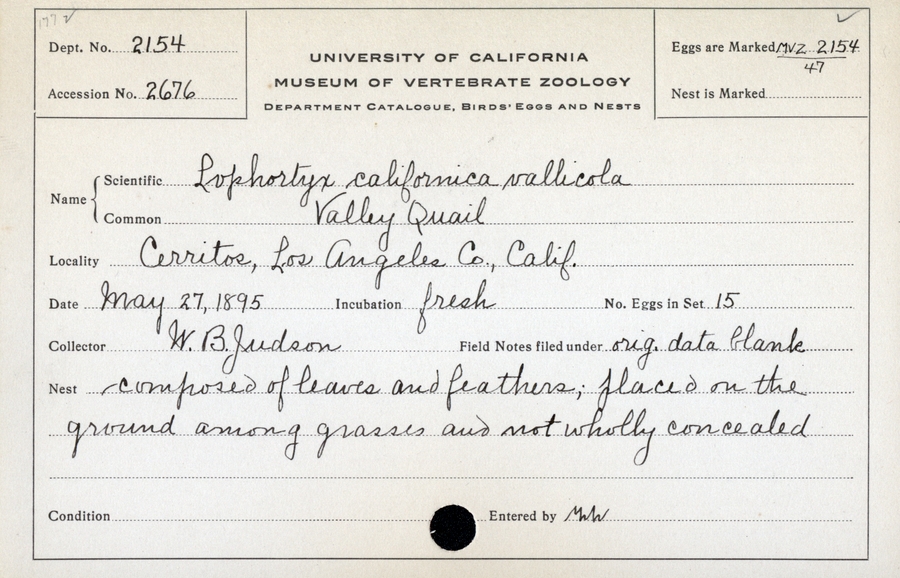 177 ✓
Dept. No. 2154
Accession No. 2676
UNIVERSITY OF CALIFORNIA
MUSEUM OF VERTEBRATE ZOOLOGY
DEPARTMENT CATALOGUE, BIRDS' EGGS AND NESTS
Eggs are Marked MVZ 2154
47
Nest is Marked
Name
Scientific Lophortyx californica vallicola
Common Valley Quail
Locality Cerritos, Los Angeles Co., Calif.
Date May 27, 1895 Incubation fresh No. Eggs in Set 15
Collector W. B. Judson Field Notes filed under orig. data blank
Nest composed of leaves and feathers; placed on the
ground among grasses and not wholly concealed
Condition Entered by